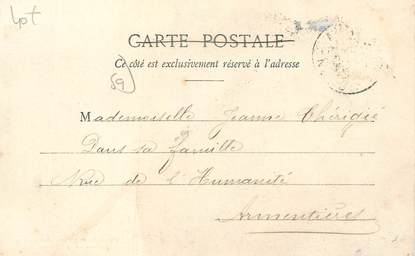 Lot
CARTE POSTALE
Ce côté est exclusivement réservé à l'adresse
59
Mademoiselle Jeanne
Dans sa famille
Rue de l'Humanité
Armentières